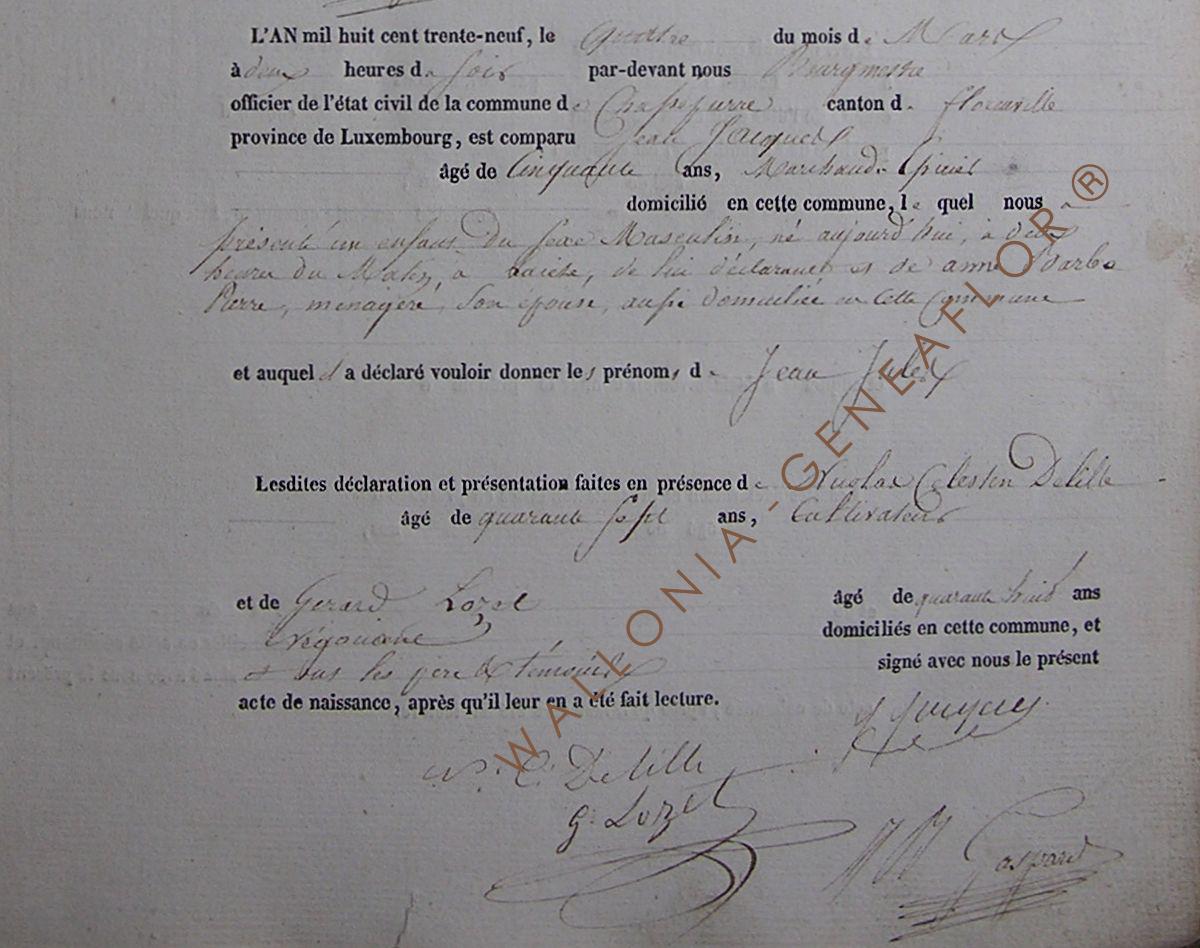 L'AN mil huit cent trente-neuf, le quatre du mois de Mars
à deux heures de soir par-devant nous Bourgmestre
officier de l'état civil de la commune de Chassepierre canton de florenville
province de Luxembourg, est comparu Jean Jacques
âgé de Cinquante ans, Marchand Epicier
domicilié en cette commune, le quel nous a
présenté un enfant du sexe Masculin, né aujourd'hui, à deux
heures du Matin, à , de lui déclarant et de anne Barbe
Pierre, ménagère, son epouse, aussi domiciliée en cette Commune
et auquel il a déclaré vouloir donner les prénoms de Jean Jules
Lesdites déclaration et présentation faites en présence de Nicolas Celestin Delille
âgé de quarante sept ans, Cultivateur
et de Gerard Lozet âgé de quarante huit ans
domiciliés en cette commune, et
signé avec nous le présent
et les père & témoins
acte de naissance, après qu'il leur en a été fait lecture.
J Jacques
N. C. Delille
G. Lozet
Gaspard
WALLONIA-GENEAFLOR ®